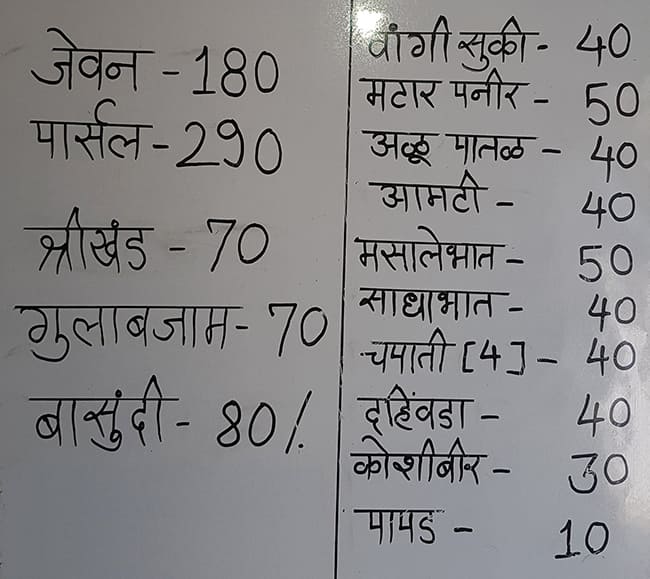 जेवन - 180
पार्सल - 290
श्रीखंड - 70
गुलाबजाम - 70
बासुंदी - 80/.
वांगी सुकी - 40
मटार पनीर - 50
अळू पातळ - 40
आमटी - 40
मसालेभात - 50
साधाभात - 40
चपाती [4] - 40
दहिंवडा - 40
कोशीबीर - 30
पापड - 10